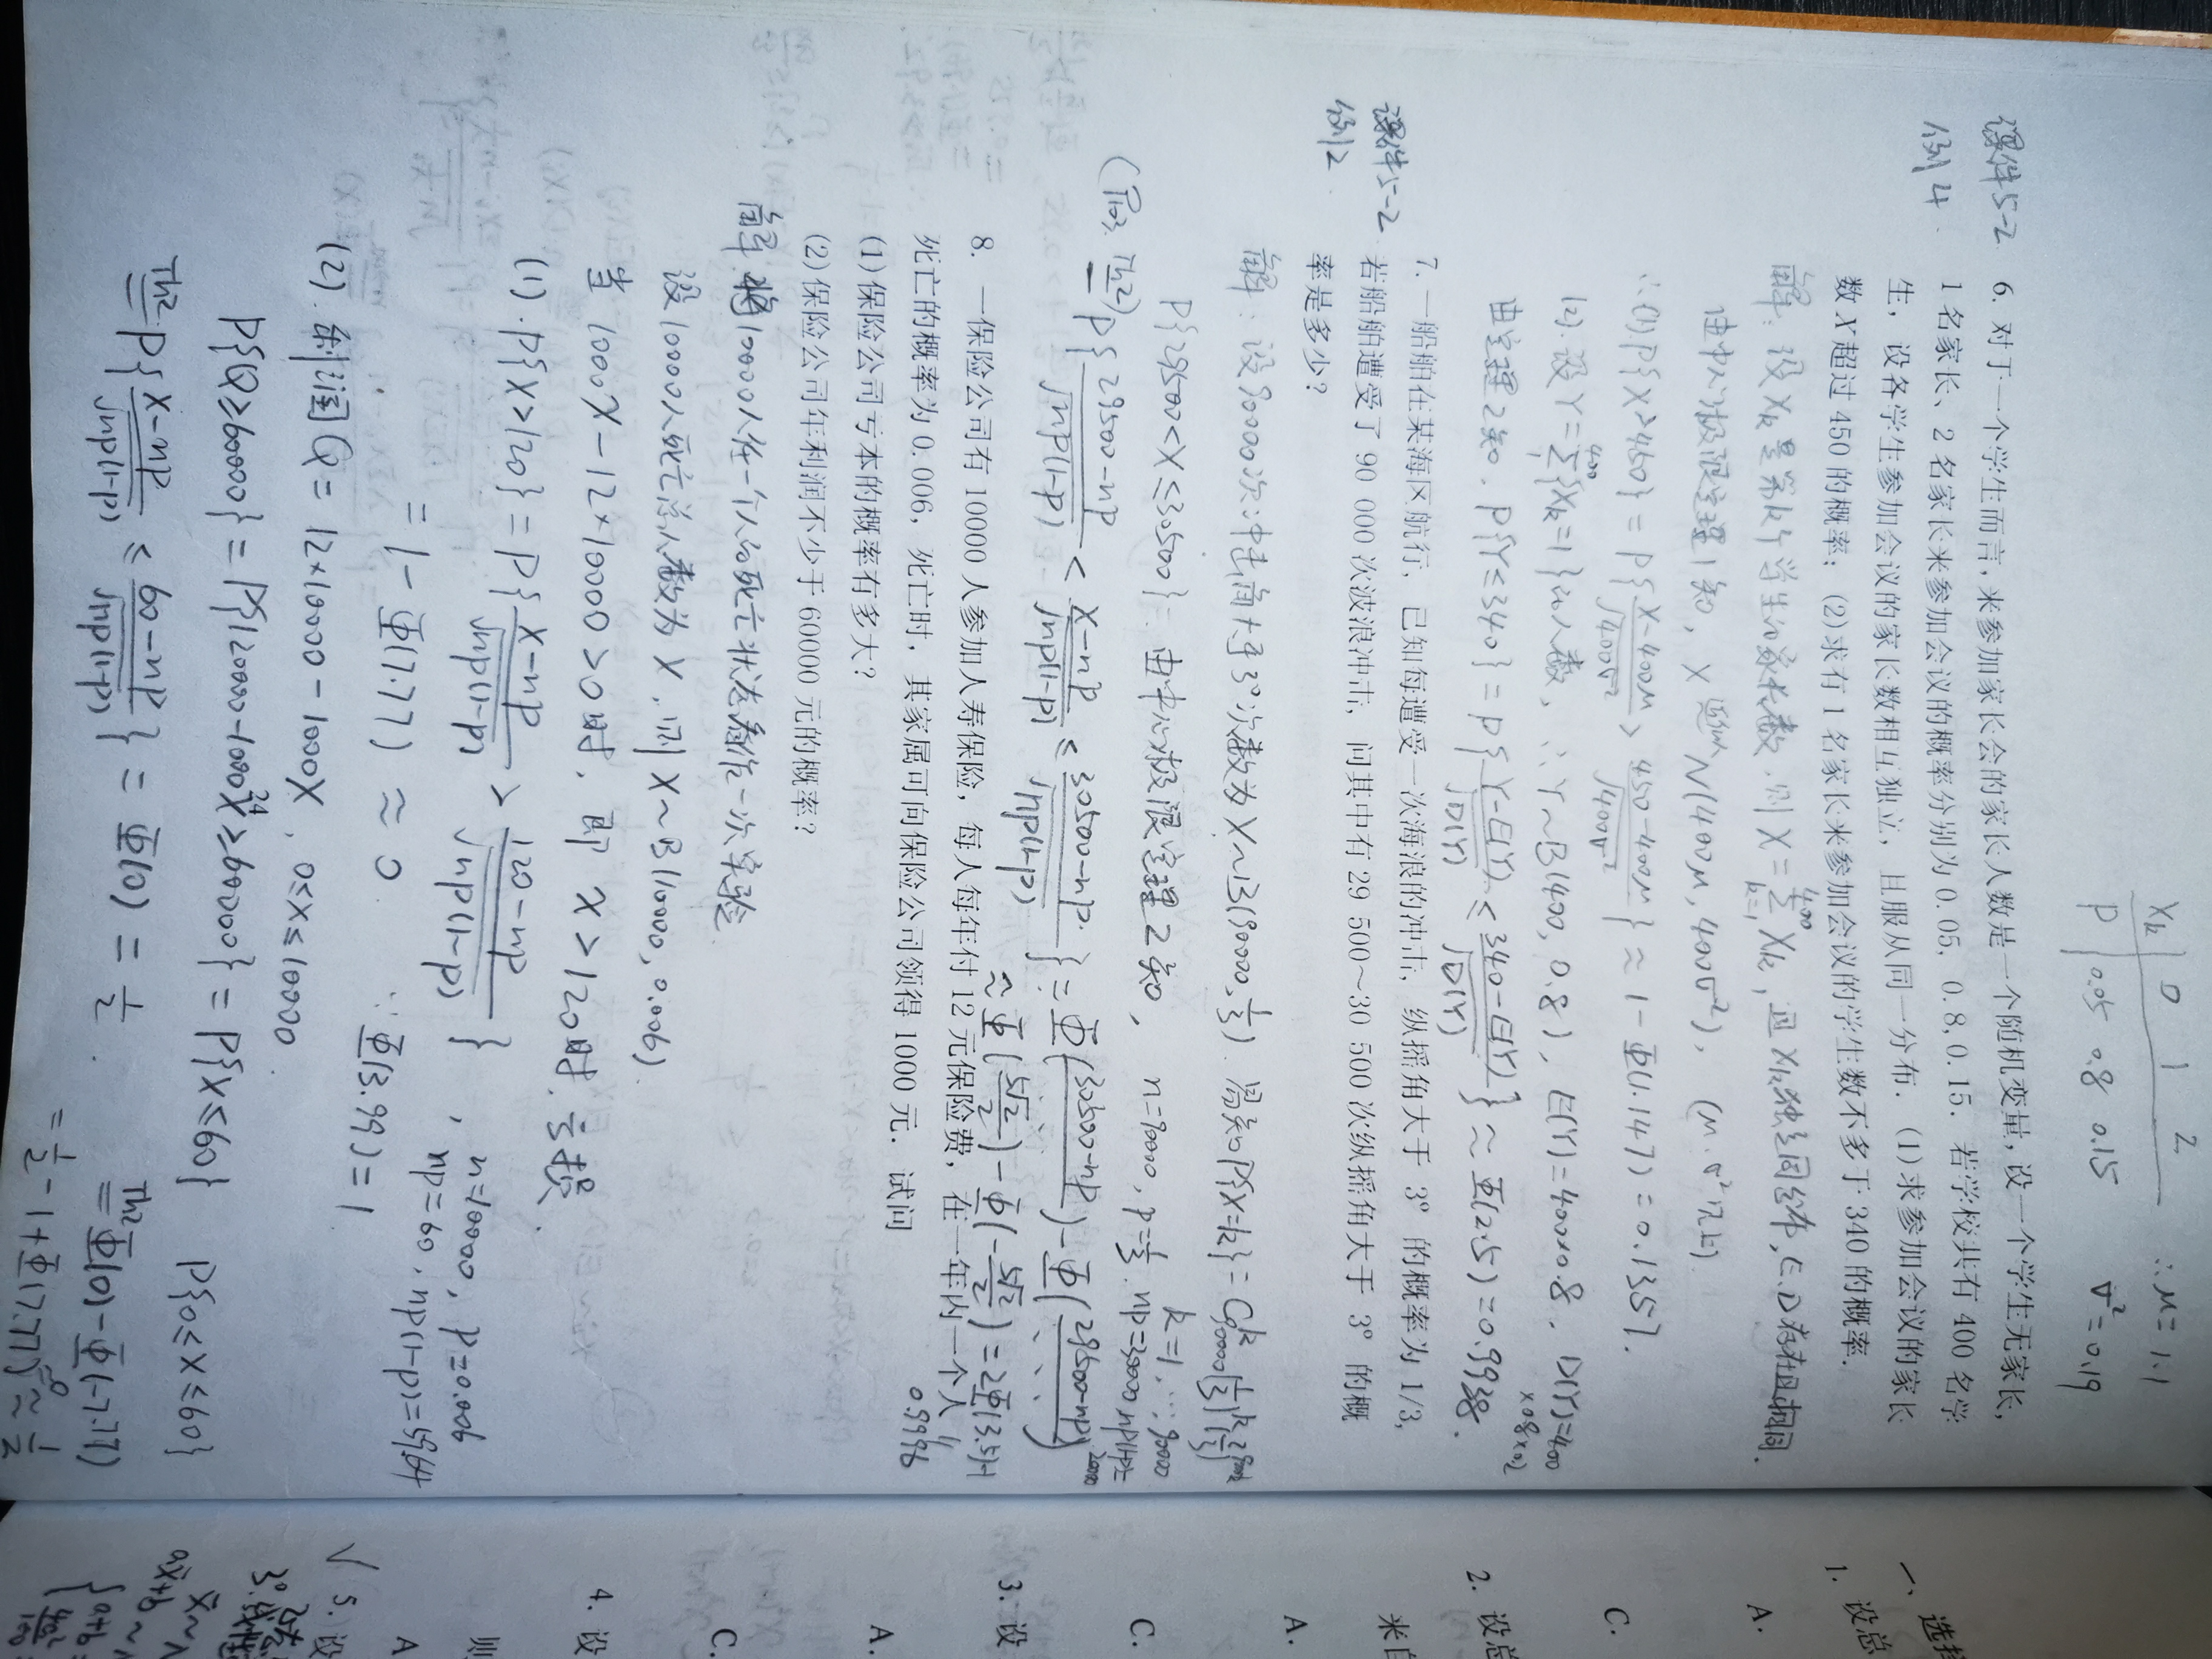 Xk | 0 1 2 ∴μ=1.1
P | 0.05 0.8 0.15 σ²=0.19
课件5-2
例4
6. 对于一个学生而言,来参加家长会的家长人数是一个随机变量,设一个学生无家长,
1名家长、2名家长来参加会议的概率分别为0.05, 0.8,0.15. 若学校共有400名学
生, 设各学生参加会议的家长数相互独立, 且服从同一分布. (1)求参加会议的家长
数X超过450的概率; (2)求有1名家长来参加会议的学生数不多于340的概率.
解: 设Xk是第k个学生的家长数, 则X=∑_{k=1}^{400} Xk, 且Xk独立同分布, E、D存在且相同.
由中心极限定理1知, X 近似~ N(400μ, 400σ²), (μ、σ²见上)
∴(1).P{X>450} = P{(X-400μ)/√(400σ²) > (450-400μ)/√(400σ²)} ≈ 1-Φ(1.147) = 0.1357.
(2). 设Y=∑_{1}^{400}{Xk=1}的人数, ∴Y~B(400, 0.8), E(Y)=400×0.8, D(Y)=400×0.8×0.2
由定理2知. P{Y≤340} = P{(Y-E(Y))/√D(Y) ≤ (340-E(Y))/√D(Y)} ≈ Φ(2.5) = 0.9938.
课件5-2
例2
7. 一船舶在某海区航行, 已知每遭受一次海浪的冲击, 纵摇角大于 3° 的概率为 1/3,
若船舶遭受了 90 000 次波浪冲击, 问其中有 29 500～30 500 次纵摇角大于 3° 的概
率是多少?
解: 设90000次冲击角大于3°次数为X~B(90000, 1/3). 易知P{X=k}=C_{90000}^k (1/3)^k (2/3)^{90000-k}
k=1,…,90000
P{29500<X≤30500} 由中心极限定理2知, n=90000, p=1/3. np=30000 np(1-p)=20000
(P103. Th2)= P{(29500-np)/√(np(1-p)) < (X-np)/√(np(1-p)) ≤ (30500-np)/√(np(1-p))} = Φ((30500-np)/…) - Φ((29500-np)/…)
≈ Φ(5√2/2) - Φ(-5√2/2) = 2Φ(3.5)-1
= 0.9996
8. 一保险公司有 10000 人参加人寿保险, 每人每年付 12 元保险费, 在一年内一个人
死亡的概率为 0.006, 死亡时, 其家属可向保险公司领得 1000 元. 试问
(1)保险公司亏本的概率有多大?
(2)保险公司年利润不少于 60000 元的概率?
解 将10000人任一个人的死亡状态看作一次实验
设10000人死亡总人数为X, 则X~B(10000, 0.006).
当 1000X-12×10000>0时, 即 X>120时, 亏损.
(1). P{X>120} = P{(X-np)/√(np(1-p)) > (120-np)/√(np(1-p))}, n=10000, p=0.006
np=60, np(1-p)=59.64
= 1-Φ(7.77) ≈ 0. ∵Φ(3.99)=1
(2). 利润Q = 12×10000-1000X, 0≤X≤10000.
24
P{Q≥60000} = P{120000-1000X≥60000} = P{X≤60} P{0≤X≤60}
Th2= P{(X-np)/√(np(1-p)) ≤ (60-np)/√(np(1-p))} = Φ(0) = 1/2. Th2= Φ(0)-Φ(-7.77)
= 1/2-1+Φ(7.77) ≈ 1/2
一、选择
1. 设总
A.
C.
2. 设总
来自
A.
C.
3. 设
A.
C.
4. 设
则
A
√ 5. 设